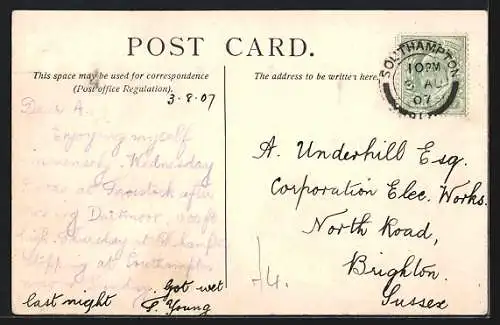 POST CARD.
This space may be used for correspondence
(Post office Regulation).
The address to be written here.
SOUTHAMPTON
10 PM
AU
07
3-8-07
Dear A.
Enjoying myself
immensely. Wednesday
I was at Tavistock after
Dartmoor,
high. Thursday at
Stopping at Southampton
Got wet
last night F. Young
A. Underhill Esq.
Corporation Elec. Works.
North Road,
Brighton.
Sussex